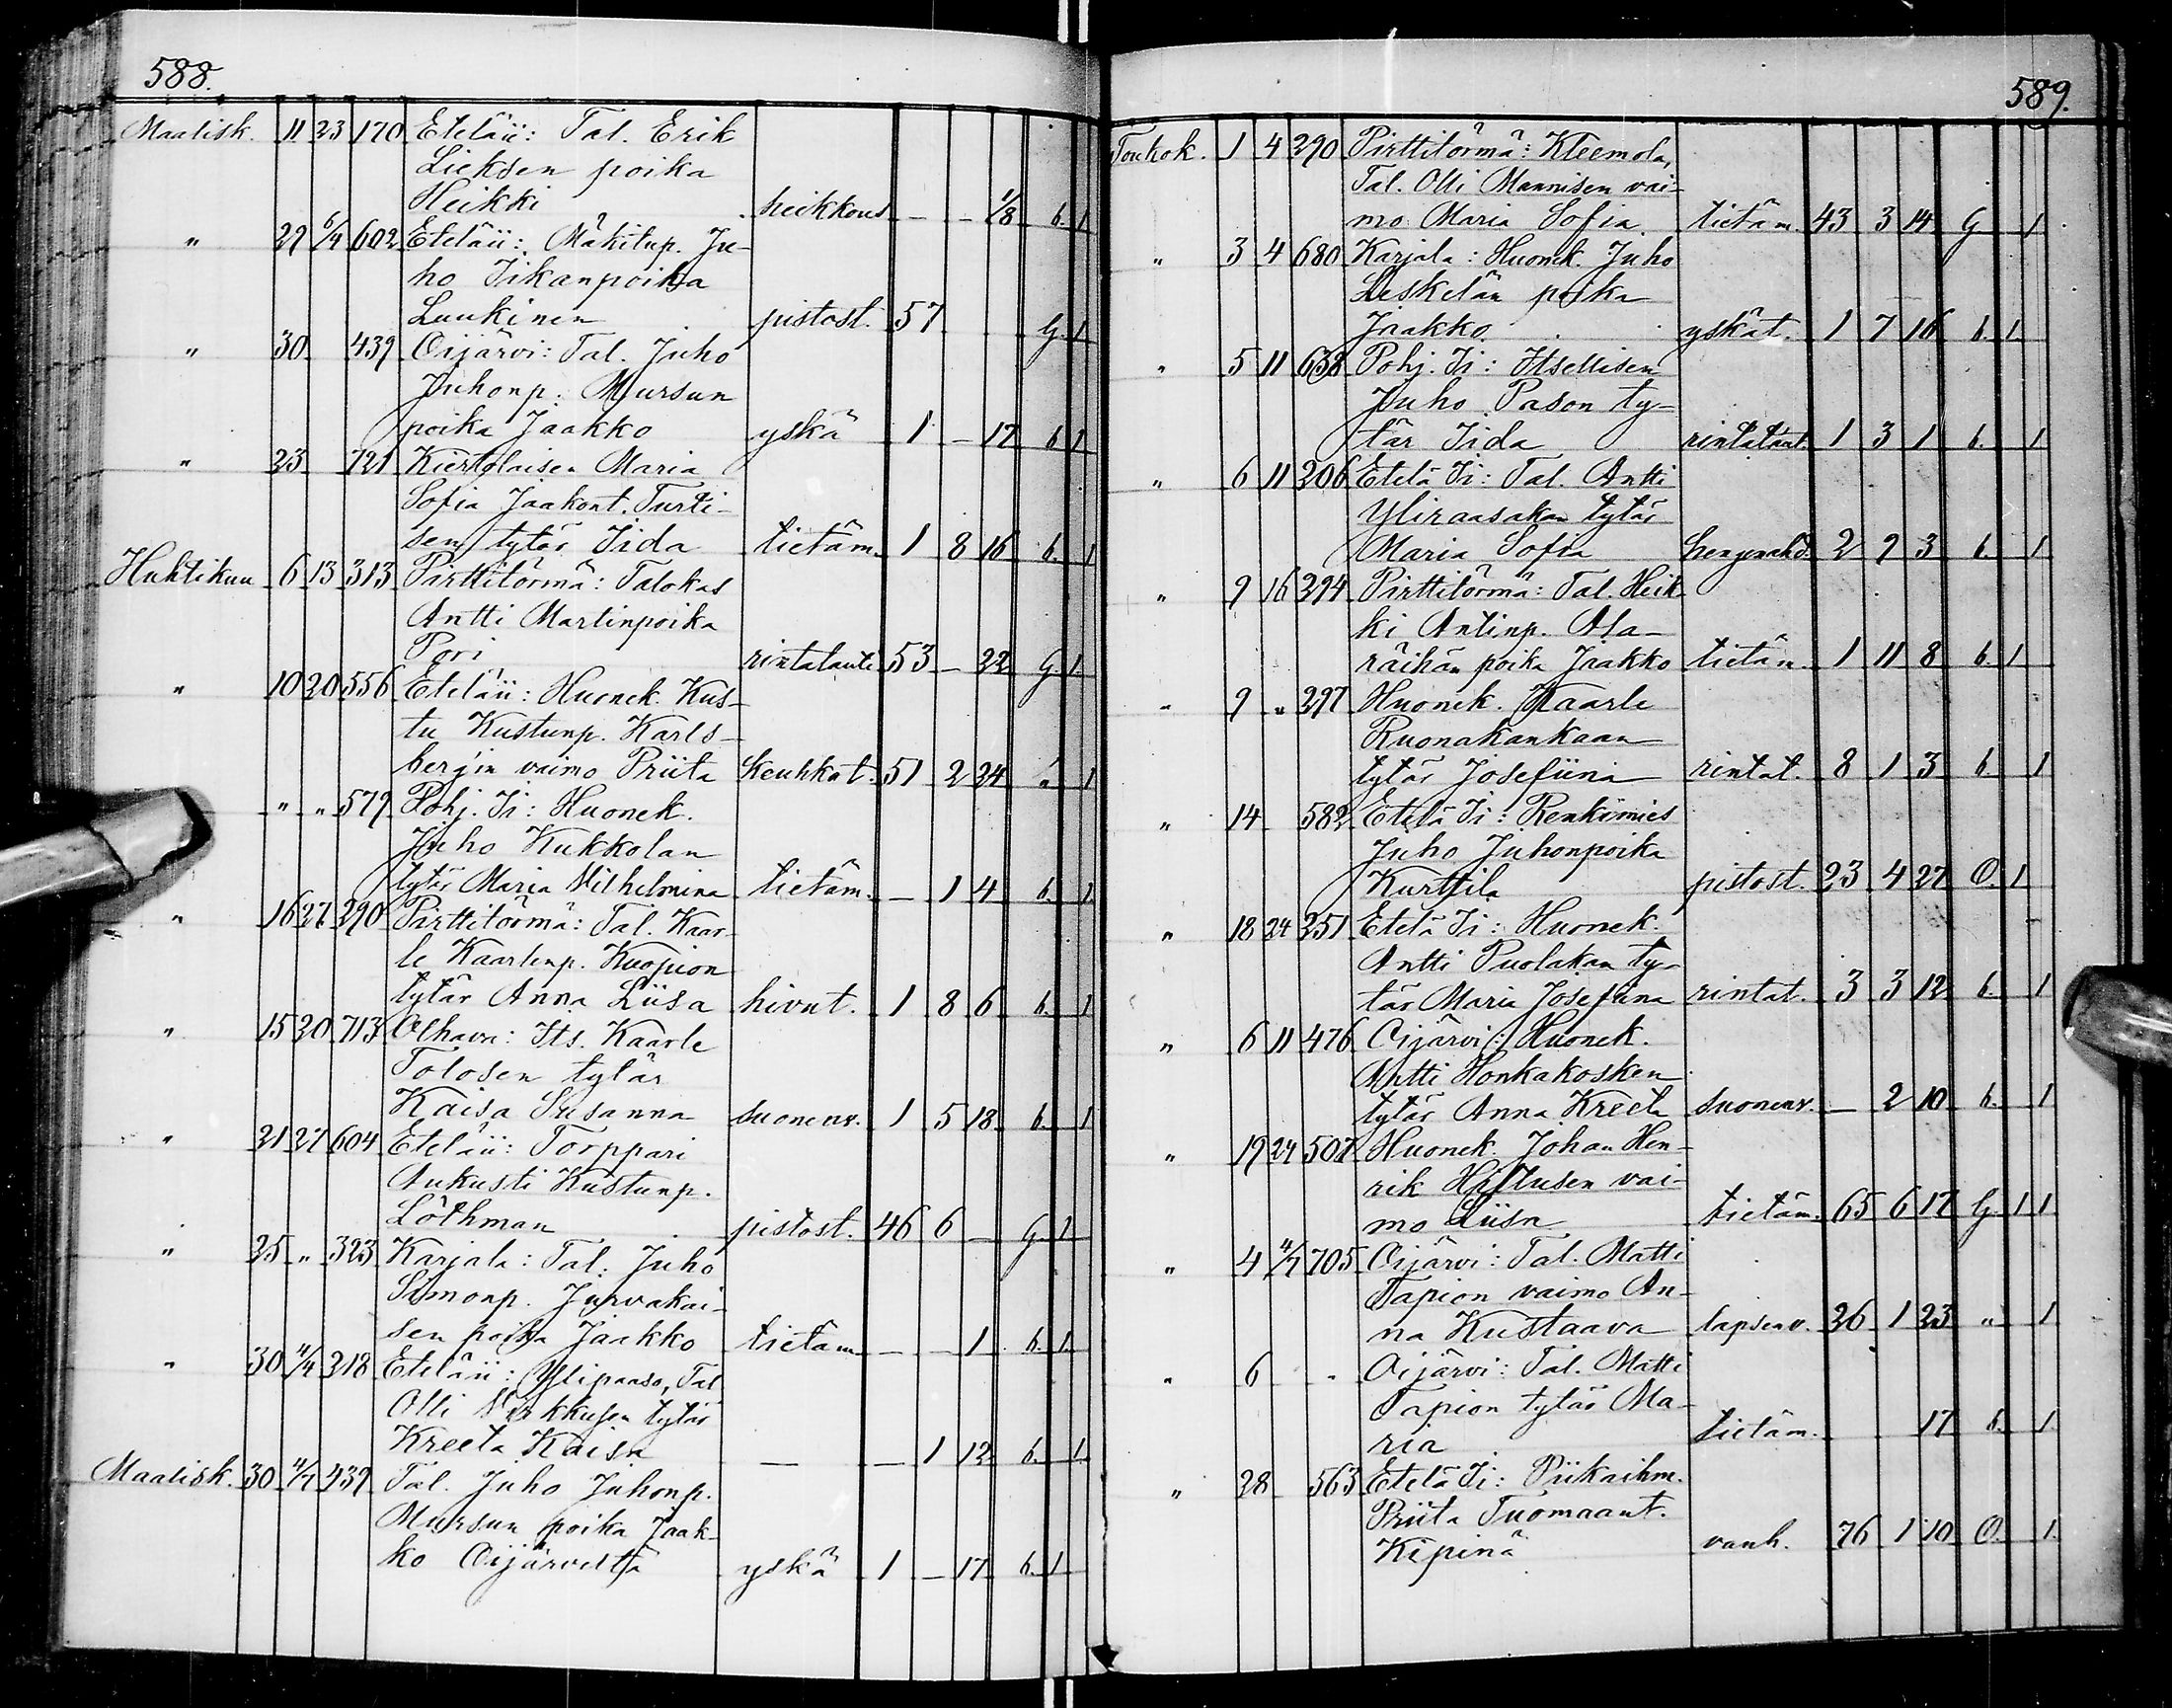 588.
Maalisk. 11 23 170 Eteläii: Tal. Erik
Lieksen poika
Heikki heikkous — — 1/8 b. 1
" 29 6/4 602 Eteläii: Mäkitup. Ju-
ho Iikanpoika
Luukinen pistost. 57 G. 1
" 30 439 Oijärvi: Tal. Juho
Juhonp. Mursun
poika Jaakko yskä 1 — 17 b 1
" 23 721 Kiertolaisen Maria
Sofia Jaakont. Turti-
sen tytär Iida tietäm. 1 8 16 b. 1
Huhtikuu 6 13 313 Pirttitörmä: Talokas
Antti Martinpoika
Pori rintataute 53 — 22 G. 1
" 10 20 556 Eteläii: Huonek. Kus-
tu Kustunp. Karls-
bergin vaimo Priita Keuhkot. 51 2 24 " 1
" " 579 Pohj. Ii: Huonek.
Juho Kukkolan
tytär Maria Vilhelmina tietäm. — 1 4 b. 1
" 16 27 290 Pirttitörmä: Tal. Kaar-
le Kaarlenp. Kuopion
tytär Anna Liisa hivut. 1 8 6 b. 1
" 15 20 713 Olhava: Its. Kaarle
Tolosen tytär
Kaisa Susanna suonenv. 1 5 18 b. 1
" 21 27 604 Eteläii: Torppari
Aukusti Kustunp.
Löthman pistost. 46 6 — G. 1
" 25 " 323 Karjala: Tal. Juho
Simonp. Jurvakai-
sen poika Jaakko tietäm — — 1 b. 1.
" 30 4/4 218 Eteläii: Ylipaaso, Tal
Olli Virkkusen tytär
Kreeta Kaisa — — 1 12 b. 1.
Maalisk. 30 4/4 439 Tal. Juho Juhonp.
Mursun poika Jaak-
ko Oijärveltä yskä 1 — 17 b. 1
589.
Toukok. 1 4 290 Pirttitörmä: Kleemola,
Tal. Olli Mannisen vai-
mo Maria Sofia tietäm. 43 3 14 G 1
" 3 4 680 Karjala: Huonek. Juho
Leskelän poika
Jaakko yskät. 1 7 16 b. 1.
" 5 11 638 Pohj. Ii: Itsellisen
Juho Pason ty-
tär Iida rintataut. 1 3 1 b. 1
" 6 11 206 Etelä Ii: Tal. Antti
Yliraasakan tytär
Maria Sofia hengenahd. 2 9 3 b. 1
" 9 16 294 Pirttitörmä: Tal. Heik-
ki Antinp. Ala-
räihän poika Jaakko tietäm. 1 11 8 b. 1
" 9 " 297 Huonek. Kaarle
Ruonakankaan
tytär Josefiina rintat. 8 1 3 b. 1
" 14 582 Etelä Ii: Renkimies
Juho Juhonpoika
Kurttila pistost. 23 4 27 O. 1
" 18 24 251 Etelä Ii: Huonek.
Antti Puolakan ty-
tär Maria Josefiina rintat. 3 3 12 b. 1
" 6 11 476 Oijärvi: Huonek.
Antti Honkakosken
tytär Anna Kreeta suonenv. — 2 10 b. 1
" 19 24 507 Huonek. Johan Hen-
rik Hiltusen vai-
mo Liisa tietäm. 65 6 17 G 1 1
" 4 4/7 705 Oijärvi: Tal. Matti
Tapion vaimo An-
na Kustaava lapsenv. 26 1 23 " 1
" 6 " Oijärvi: Tal. Matti
Tapion tytär Ma-
ria tietäm. 17 b. 1
" 28 563 Etelä Ii: Piikaihm.
Priita Tuomaant.
Kipinä vanh. 76 1 10 O. 1.